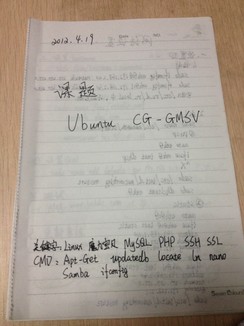 2012.4.19
课题
Ubuntu CG-GMSV
关键字: Linux MySQL PHP SSH SSL
CMD: Apt-Get updatedb locate ln nano
Samba ifconfig